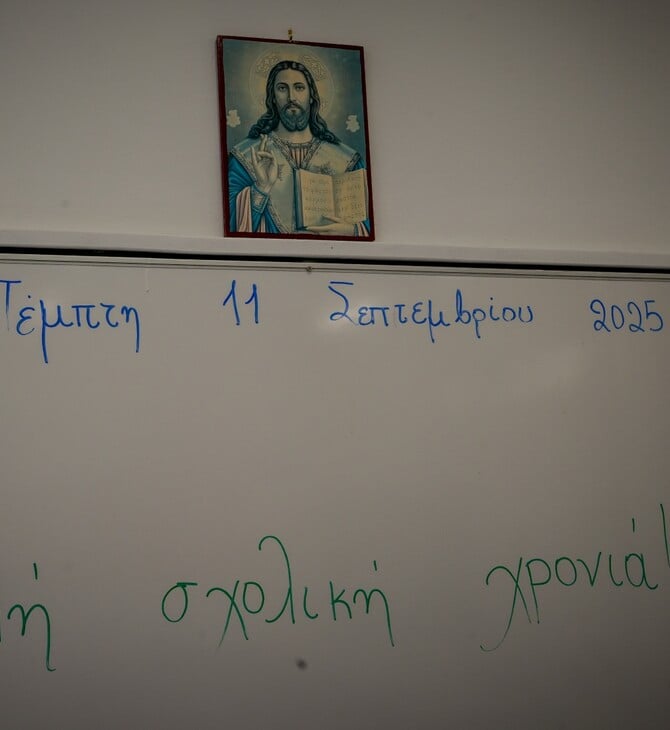 Πέμπτη 11 Σεπτεμβρίου 2025
σχολική χρονιά!